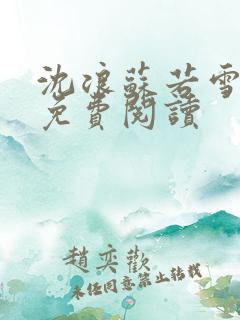 沈浪蘇若雪
免費閱讀
趙奕歡
未经同意禁止转载